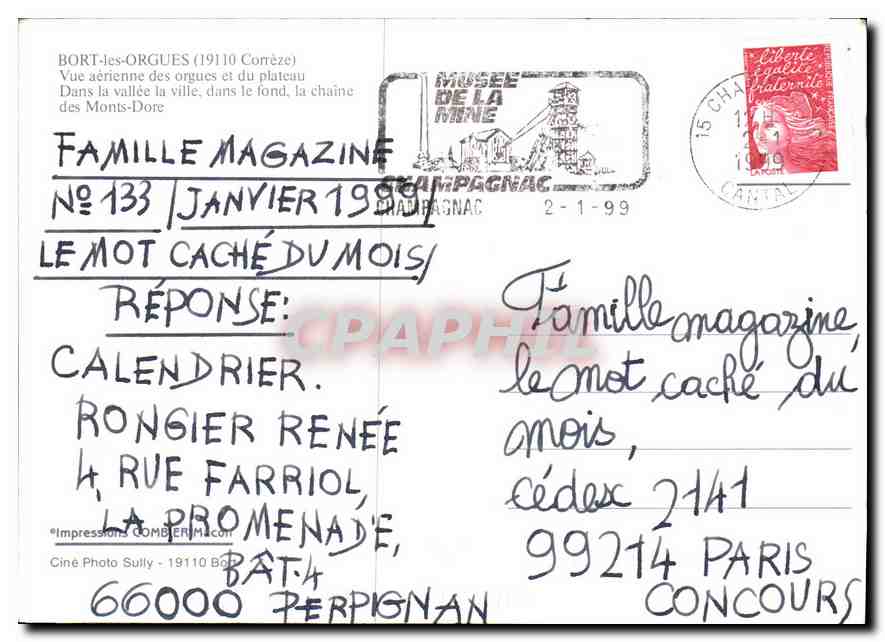 BORT-les-ORGUES (19110 Corrèze)
Vue aérienne des orgues et du plateau
Dans la vallée la ville, dans le fond, la chaîne
des Monts-Dore
MUSEE
DE LA
MINE
CHAMPAGNAC
CHAMPAGNAC 2-1-99
15 CHA
2-1
1999
CANTAL
liberté
égalité
fraternité
LA POSTE
FAMILLE MAGAZINE
Nº 133 / JANVIER 1999/
LE MOT CACHÉ DU MOIS/
RÉPONSE:
CALENDRIER.
RONGIER RENÉE
4, RUE FARRIOL,
LA PROMENADE,
BÂT.4
66000 PERPIGNAN
Impressions COMBIER Macon
Ciné Photo Sully - 19110 Bort
Famille magazine,
le mot caché du
mois,
cédex 2141
99214 PARIS
CONCOURS
CPAPHIL